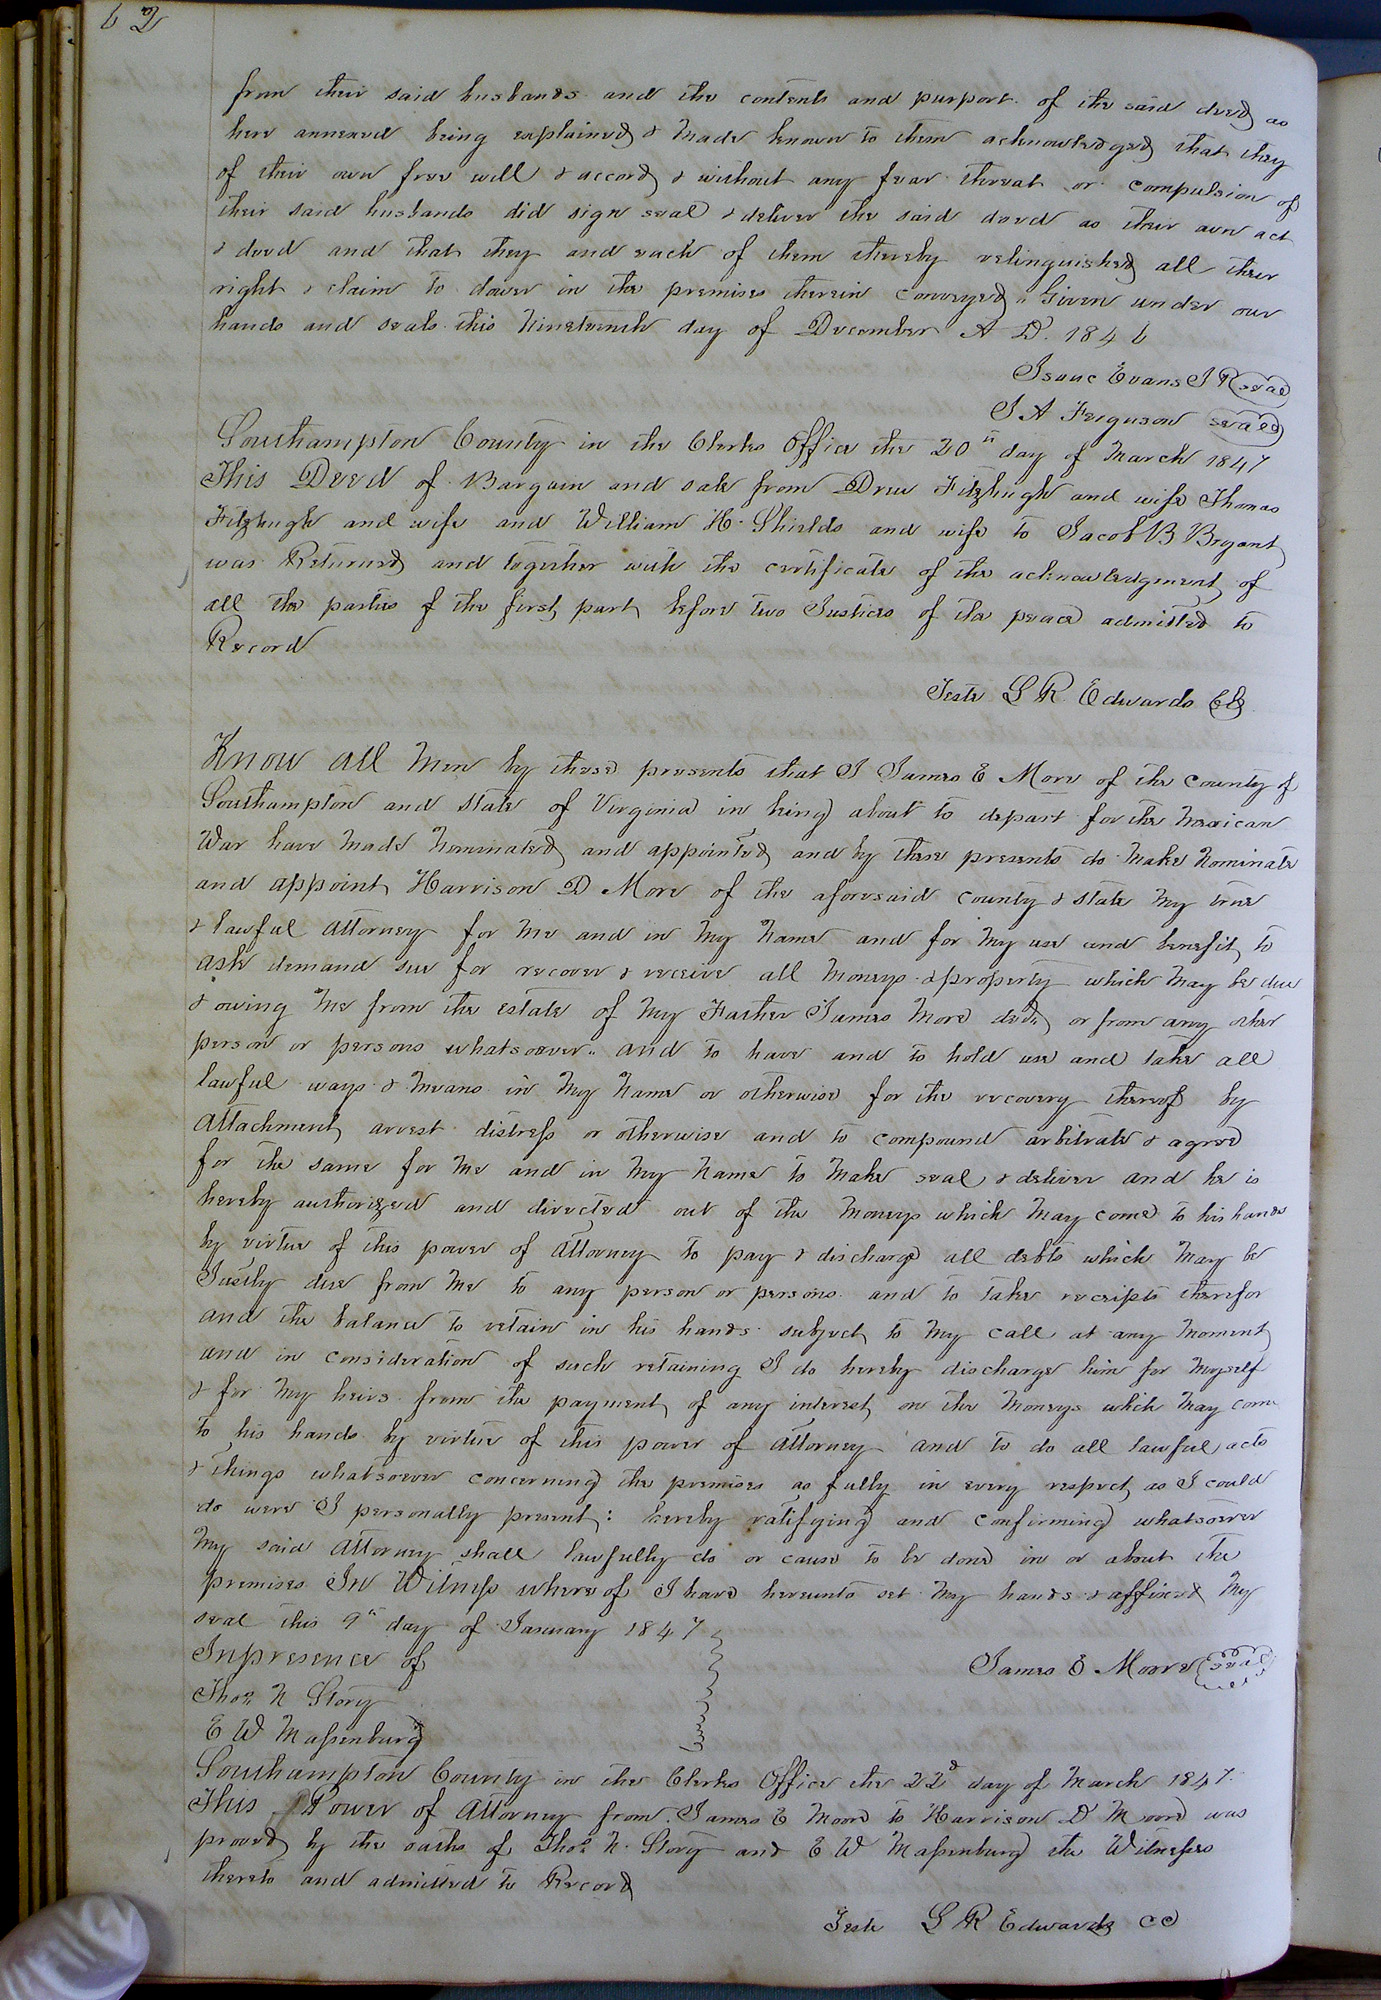 62
from their said husbands and the contents and purport of the said deed as
here annexed being explained & made known to them acknowledged that they
of their own free will & accord & without any fear threat or compulsion of
their said husbands did sign seal & deliver the said deed as their own act
& deed and that they and each of them thereby relinquished all their
right & claim to dower in the premises therein conveyed. Given under our
hands and seals this Nineteenth day of December A D. 1846
Isaac Evans J P seal
J A Ferguson seal
Southampton County in the Clerks Office the 20th day of March 1847
This Deed of Bargain and sale from Drew Fitzhugh and wife Thomas
Fitzhugh and wife and William H. Shields and wife to Jacob B Bryant
was Returned and together with the certificate of the acknowledgment of
all the parties of the first part before two Justices of the peace admitted to
Record
Teste L R Edwards Clk
Know all Men by these presents that I James E More of the County of
Southampton and State of Virginia in being about to depart for the Mexican
War have Made Nominated and appointed and by these presents do Make Nominate
and appoint Harrison D More of the aforesaid County & State My true
& lawful Attorney for Me and in My Name and for My use and benefit to
ask demand sue for recover & receive all Moneys & property which May be due
& owing Me from the estate of My Father James More decd. or from any other
person or persons whatsoever.. and to have and to hold use and take all
lawful ways & Means in My Name or otherwise for the recovery thereof by
Attachment arrest distress or otherwise and to compound arbitrate & agree
for the same for Me and in My Name to Make seal & deliver and he is
hereby authorized and directed out of the Moneys which May come to his hands
by virtue of this power of Attorney to pay & discharge all debts which May be
Justly due from Me to any person or persons and to take receipts therefor
and the balance to retain in his hands subject to My call at any Moment
and in consideration of such retaining I do hereby discharge him for Myself
& for My heirs from the payment of any interest on the Moneys which May come
to his hands by virtue of this power of Attorney and to do all lawful acts
& things whatsoever concerning the premises as fully in every respect as I could
do were I personally present: hereby ratifying and confirming whatsoever
My said Attorney shall lawfully do or cause to be done in or about the
premises In Witness whereof I have hereunto set My hands & affixed My
seal this 9th day of January 1847
In presence of
James E Moore seal
Thos. N Story
E W Massenburg
Southampton County in the Clerks Office the 22d day of March 1847.
This Power of Attorney from James E Moore to Harrison D Moore was
proved by the oaths of Thos. N. Story and E W Massenburg the Witnesses
thereto and admitted to Record
Teste L R Edwards CC